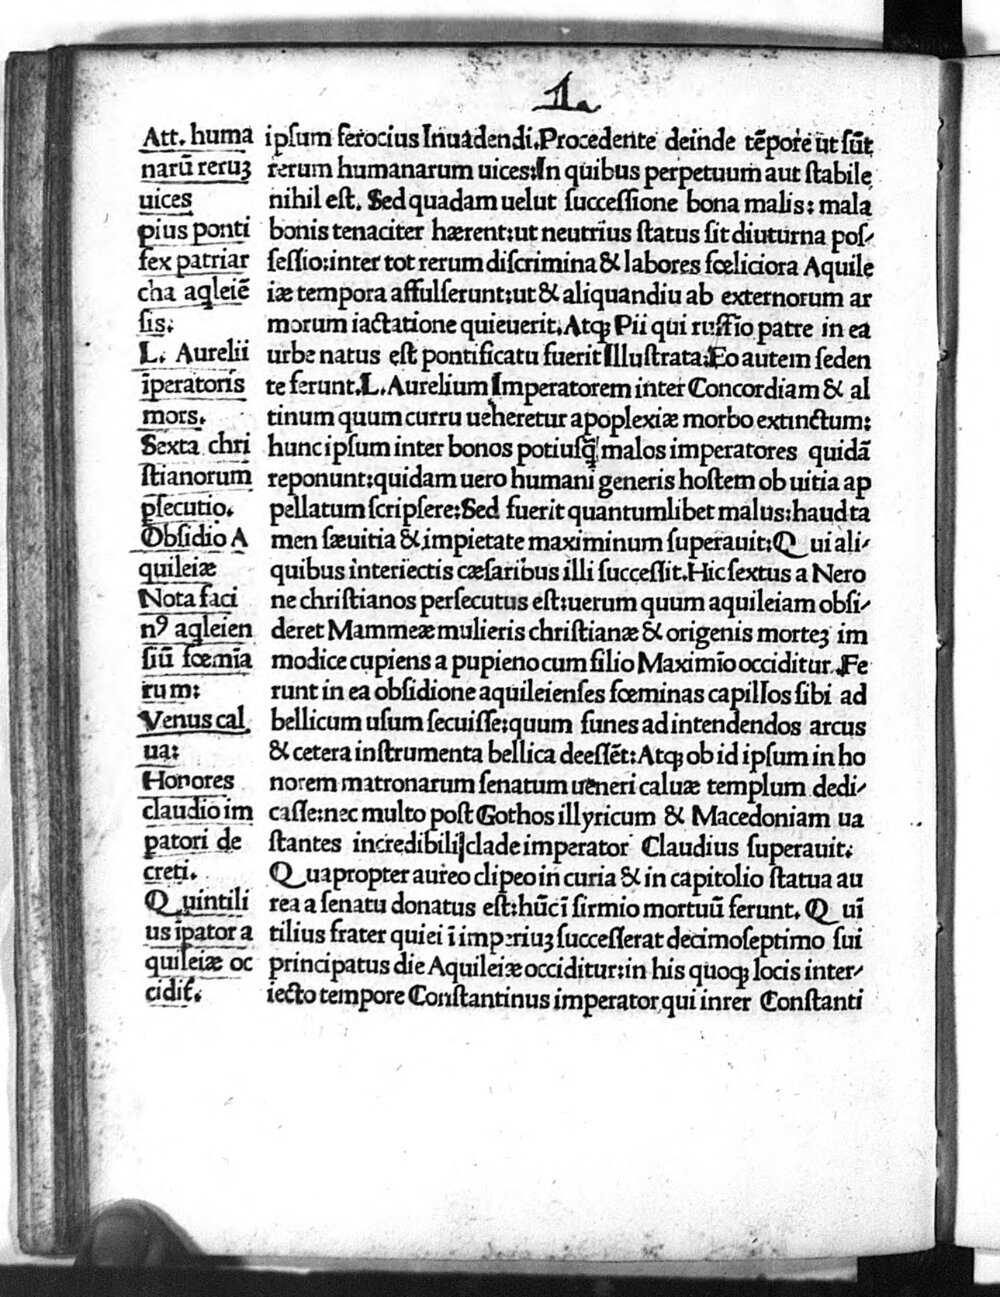 Att. huma
narū reruȝ
uices
pius ponti
fex patriar
cha aqleiē
ſis:
L. Aurelii
īperatoris
mors.
Sexta chri
ſtianorum
pſecutio.
Obſidio A
quileiæ
Nota faci
nꝰ aqleien
ſiū fœmīa
rum:
Venus cal
ua:
Honores
claudio im
patori de
creti.
Quintili
us īpator a
quileiæ oc
cidit.
ipſum ferocius Inuadendi. Procedente deinde tēpore ut ſūt
rerum humanarum uices: In quibus perpetuum aut ſtabile
nihil eſt. Sed quadam uelut ſucceſſione bona malis: mala
bonis tenaciter hærent: ut neutrius ſtatus ſit diuturna poſ-
ſeſſio: inter tot rerum diſcrimina & labores fœliciora Aquile
iæ tempora affulſerunt: ut & aliquandiu ab externorum ar
morum iactatione quieuerit. Atqꝫ Pii qui ruffio patre in ea
urbe natus eſt pontificatu fuerit Illuſtrata: Eo autem ſeden
te ferunt. L. Aurelium Imperatorem inter Concordiam & al
tinum quum curru ueheretur apoplexiæ morbo extinctum:
hunc ipſum inter bonos potiuſq̄ malos imperatores quidā
reponunt: quidam uero humani generis hoſtem ob uitia ap
pellatum ſcripſere: Sed fuerit quantumlibet malus: haud ta
men ſæuitia & impietate maximinum ſuperauit: Qui ali-
quibus interiectis cæſaribus illi ſucceſſit. Hic ſextus a Nero
ne chriſtianos perſecutus eſt: uerum quum aquileiam obſi-
deret Mammeæ mulieris chriſtianæ & origenis morteȝ im
modice cupiens a pupieno cum filio Maximīo occiditur. Fe
runt in ea obſidione aquileienſes fœminas capillos ſibi ad
bellicum uſum ſecuiſſe: quum funes ad intendendos arcus
& cetera inſtrumenta bellica deeſſēt: Atqꝫ ob id ipſum in ho
norem matronarum ſenatum ueneri caluæ templum dedi-
caſſe: nec multo poſt Gothos illyricum & Macedoniam ua
ſtantes incredibili clade imperator Claudius ſuperauit:
Quapropter aureo clipeo in curia & in capitolio ſtatua au
rea a ſenatu donatus eſt: hūc ī ſirmio mortuū ferunt. Quī
tilius frater qui ei ī imperiuȝ ſucceſſerat decimoſeptimo ſui
principatus die Aquileiæ occiditur: in his quoqꝫ locis inter-
iecto tempore Conſtantinus imperator qui inrer Conſtanti